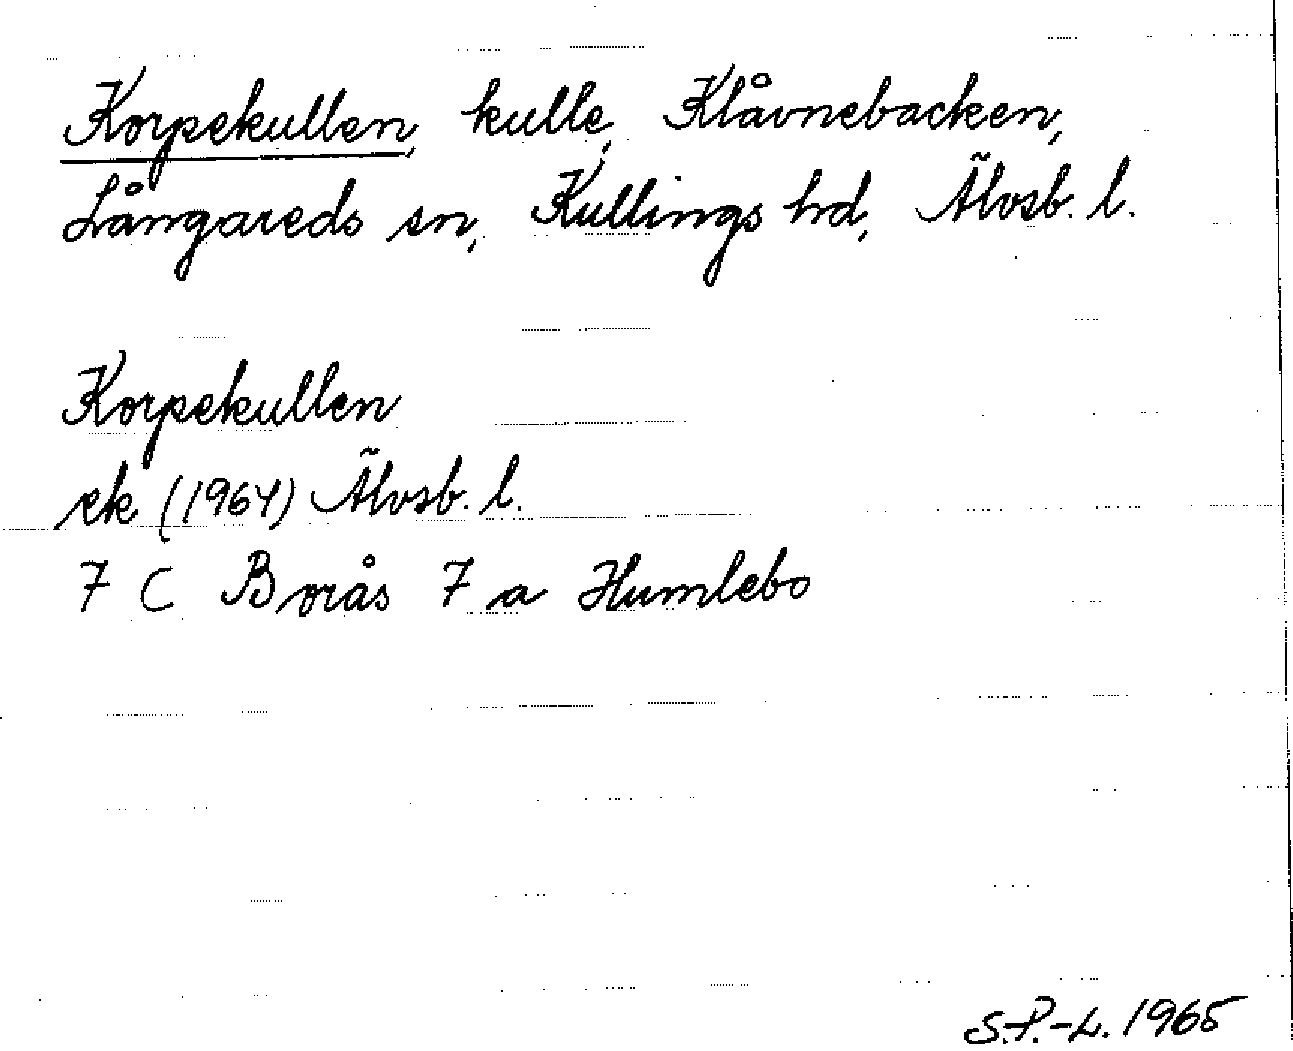 Korpekullen, kulle, Klåvnebacken,
Långareds sn, Kullings hd, Älvsb. l.
Korpekullen
ek (1964) Älvsb. l.
7 C Borås 7 a Humlebo
S.P.-L. 1965